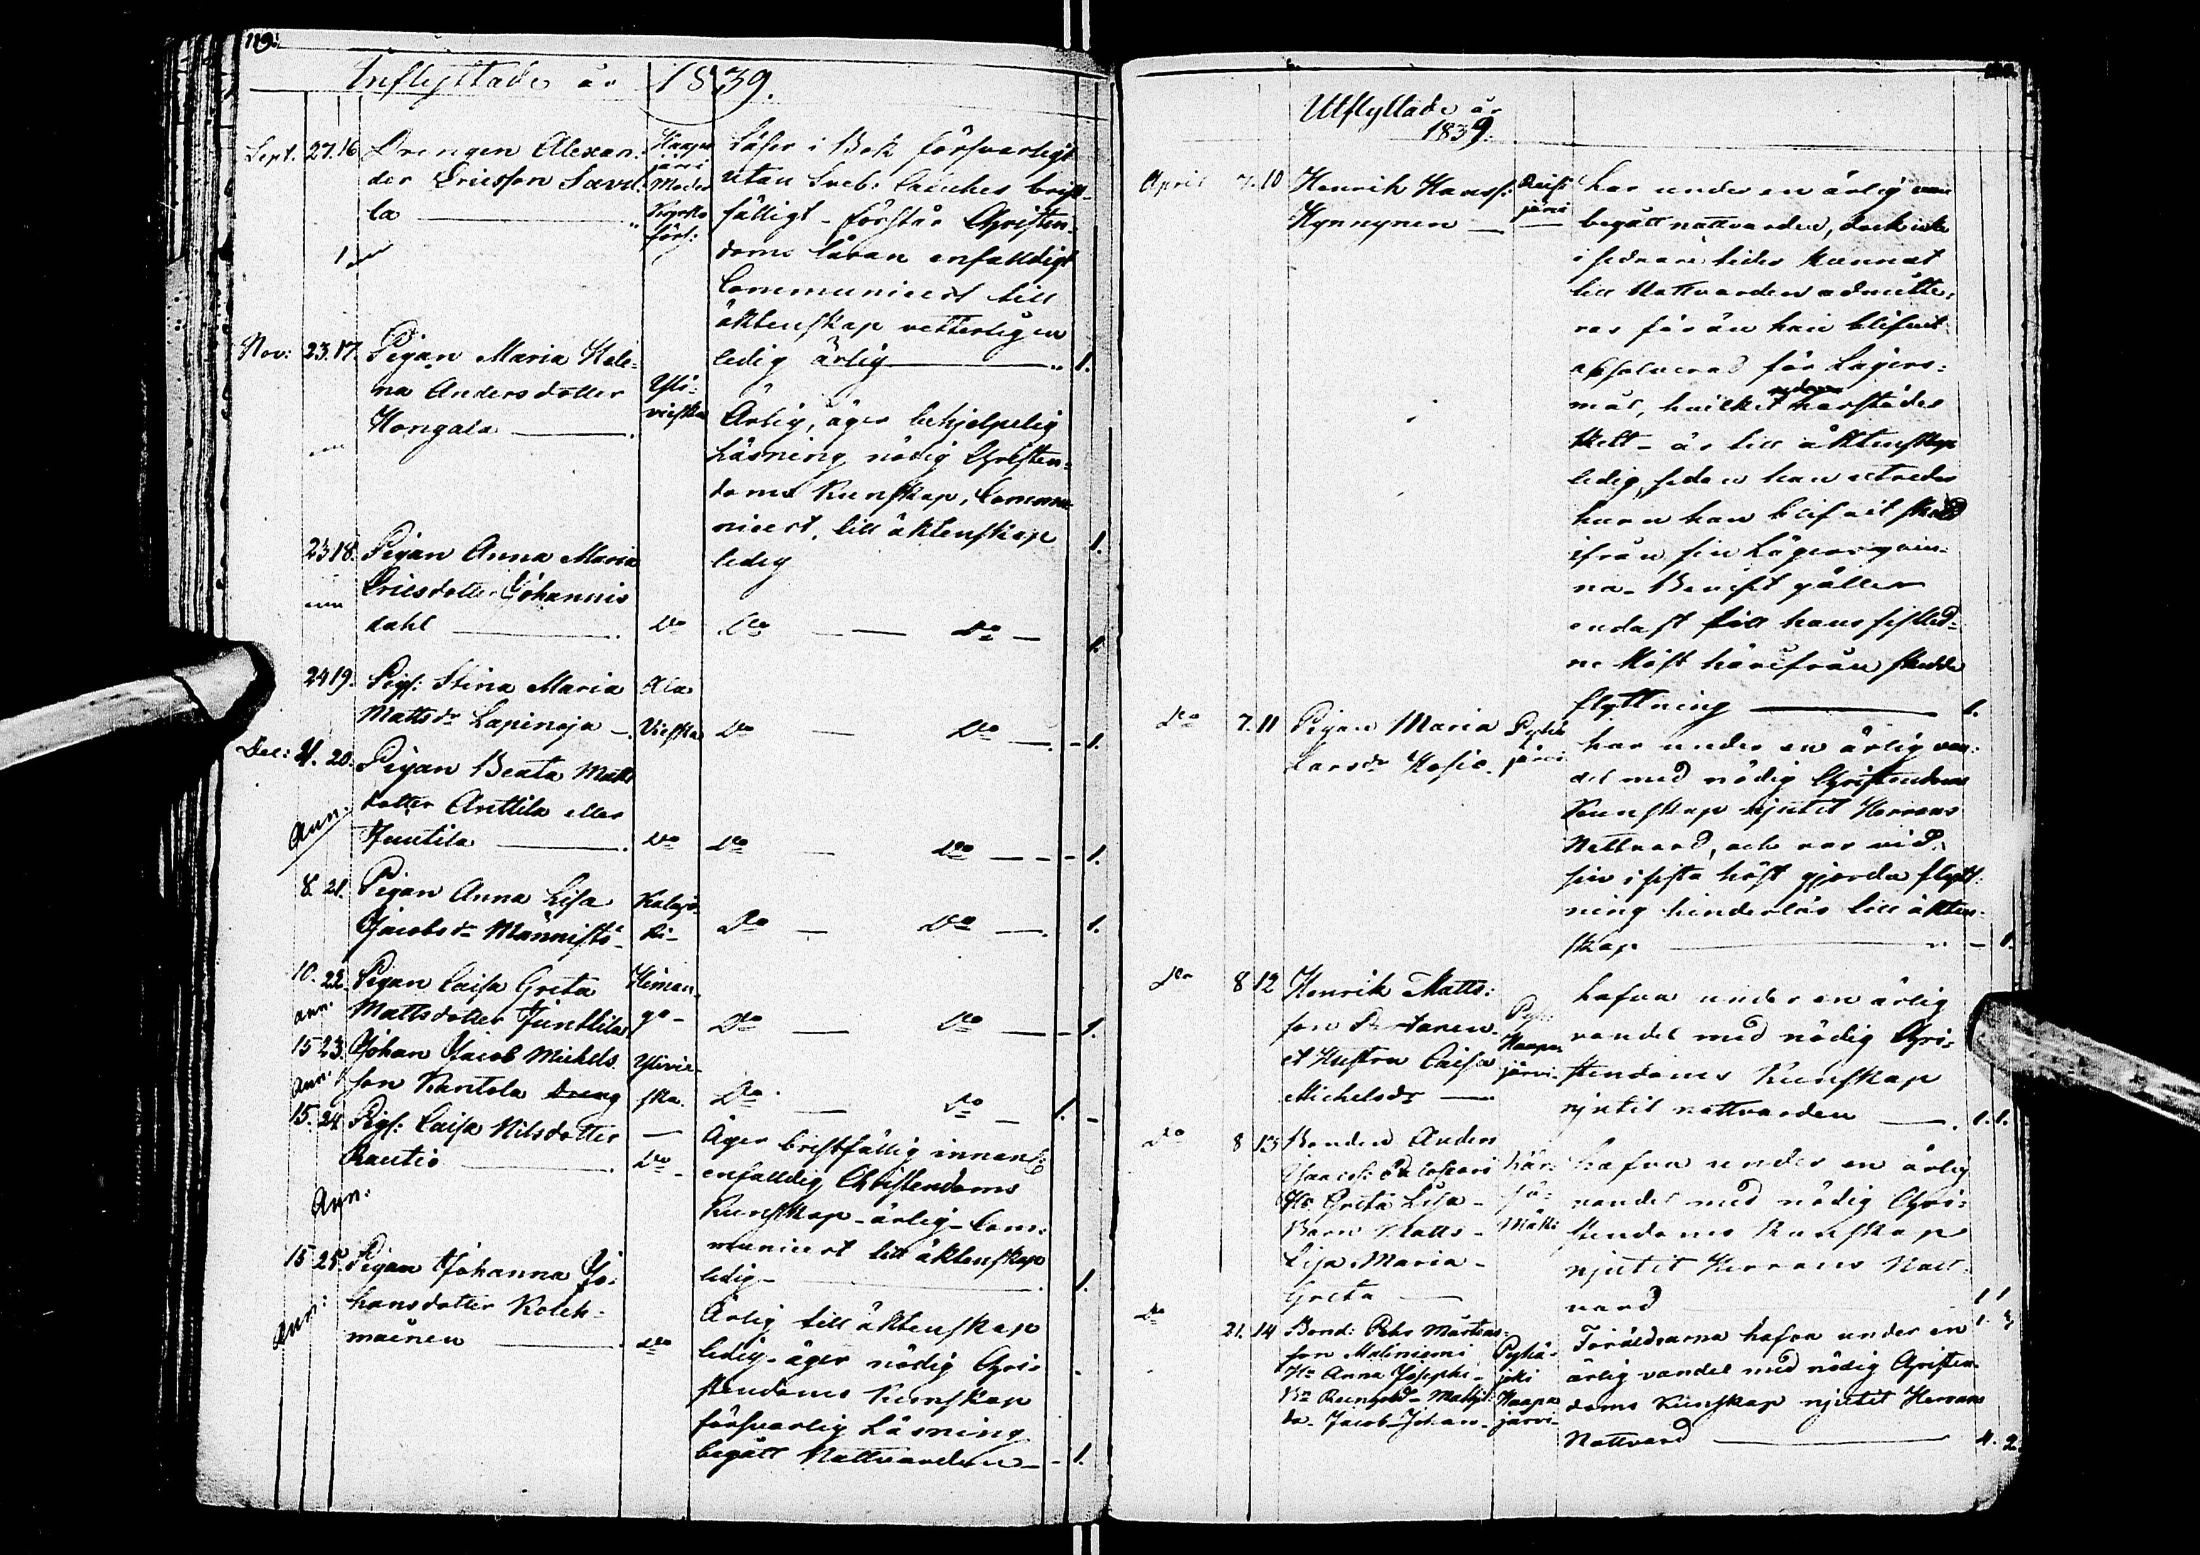 119.
Inflyttade år 1839.
Sept. 27. 16 Drengen Alexan-
der Ericsson Savi-
la
Haapa
järvi
Moder
Kyrko
förs:
Läser i Bok försvarligt
utan Sveb: Cateches brist-
fälligt - förstår Christen-
doms läran enfalldigt
Communicerat till
äktenskap vetterligen
ledig ärlig 1.
Nov: 23. 17. Pigan Maria Hele-
na Andersdotter
Kongala
Ylivieska
Ärlig, äger behjelpelig
Läsning nödig Christen-
doms Kunskap, Commu
nicerat, till äktenskap
ledig 1.
23 18. Pigan Anna Maria
Ericsdotter Johannis
dahl Do Do Do 1.
24 19. Pigs: Stina Maria Ala
Mattsdr Lapinoja Vieska Do Do 1.
Dec: 1. 20. Pigan Beata Matts
dotter Anttila eller
Ann:
Juntila Do Do Do 1.
8. 21. Pigan Anna Lisa Kalajo-
Jacobsdr Männistö ki Do Do 1.
10. 22. Pigan Caisa Greta Himan-
ann. Mattsdotter Junttila go Do Do 1.
15 23. Johan Jacob Michels Ylivie-
Ann. son Kantola Dreng ska. Do Do 1.
15. 24 Pigs: Caisa Nilsdotter
Rautio Do
Ann.
Äger bristfällig innanl:
enfalldig Christendoms
Kunskap - ärlig - Com-
municerat till äktenskap
ledig 1.
15 25. Pigan Johanna Jo-
Ann: hansdotter Koleh-
mainen Do
Ärlig till äktenskap
ledig - äger nödig Chri-
stendoms Kunskap
försvarlig Läsning
begått Nattvarden 1.
Utflyttade år
1839.
April 7. 10 Henrik Hanss:
Kynnynen
järvi
har under en ärlig van
begått nattvarden, dock icke
i sednare tider kunnat
till Nattvarden admitte-
ras för än han blifvit
absolverad för Lägers-
mål, hvilket härstädes
skett - är till äktenskap
ledig, sedan han utredes
huru han blifvit skild
ifrån sin Lägersqvin-
na - Beviset gäller
endast till hans sistled-
ne Höst härifrån skedde
flyttning 1.
Do 7. 11 Pigan Maria Pyhä
Larsdr Kosio. järvi
har under en ärlig van-
del med nödig Christendoms
Kunskap njutit Herrans
Nattvard, och var vid
sin i sista höst gjorda flytt-
ning hinderlös till äkten-
skap 1.
Do 8 12 Henrik Matts-
son
et Hustru Caisa
Michelsdr
Haapa
järvi
hafva under en ärlig
vandel med nödig Chri-
stendoms Kunskap
njutit nattvarden 1. 1.
Do 8 13 Bonden Anders
Isacss:
Hu Greta Lisa
Barn Matts
Lisa Maria
Greta
Här-
jä-
Mäki
hafva under en ärlig
vandel med nödig Chri-
stendoms Kunskap
njutit Herrans Natt-
vard 1 1
1. 3
Do 21. 14 Bond: Pehr Mårtens-
son Maliniemi
Hu Anna Josephs-
da - Jacob - Johan
Pyhä-
joki
Haapa
järvi
Föräldrarna hafva under en
ärlig vandel med nödig Christen-
doms Kunskap njutit Herrans
Nattvard 4. 2.